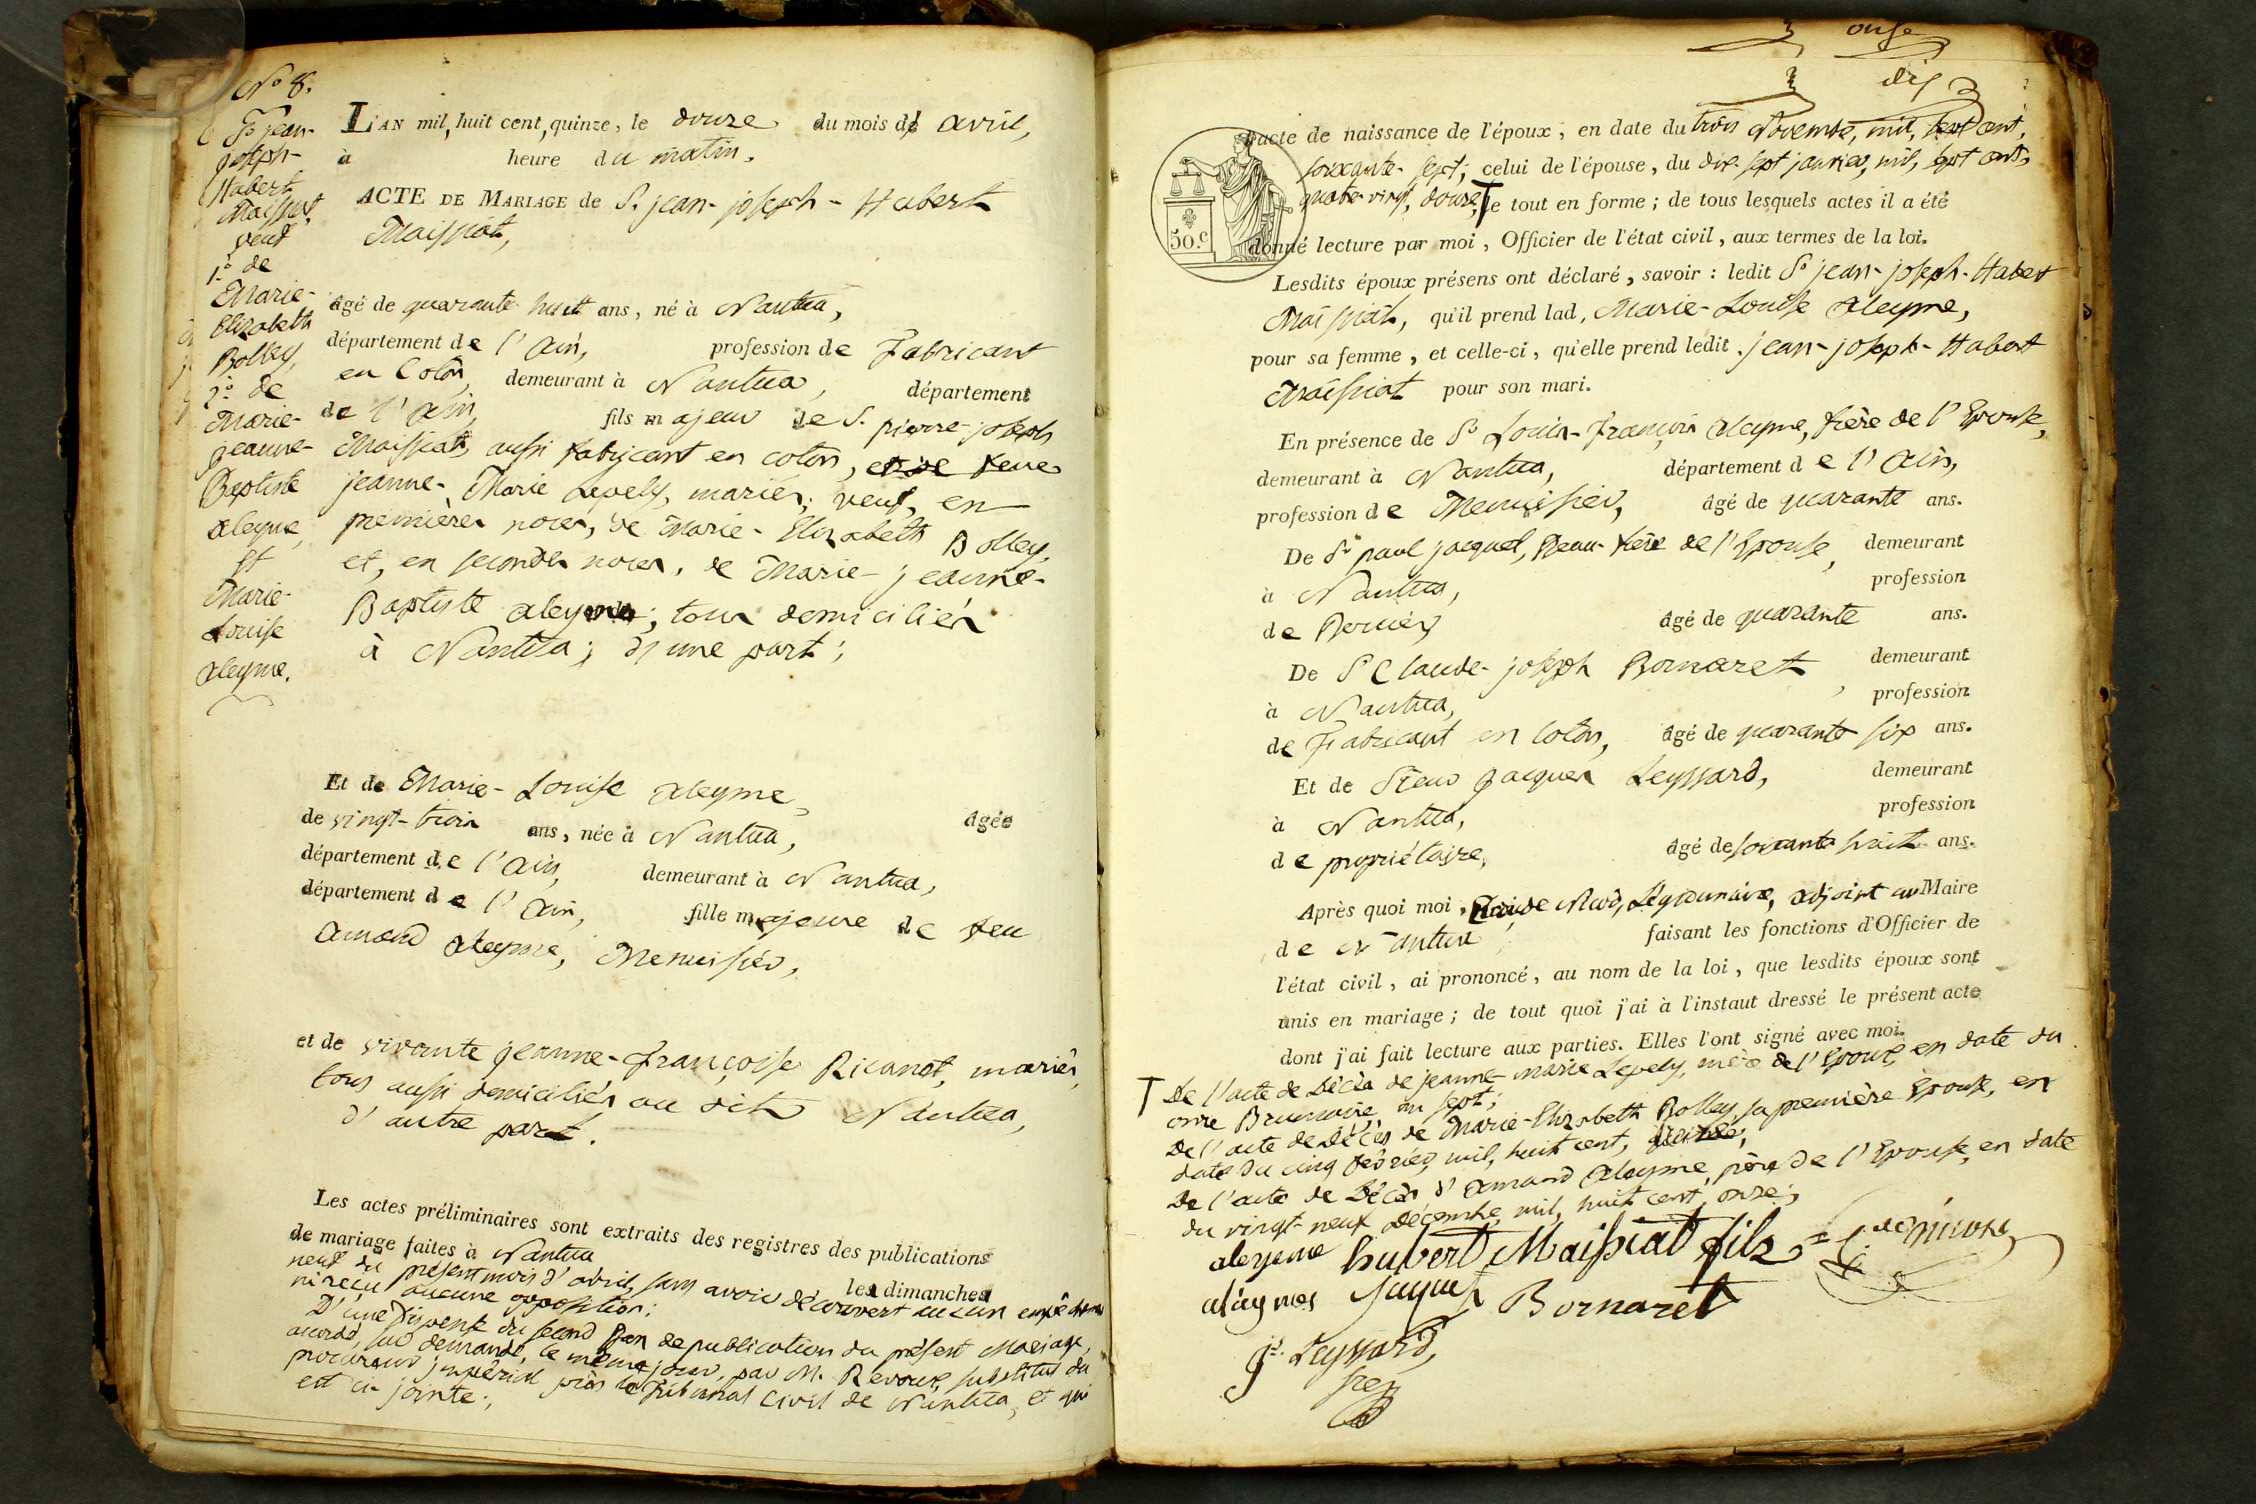 No 8.
Sr jean-
joseph-
Hubert
Maissiat,
veuf
1.o de
Marie-
Elizabeth
Bolley,
2.o de
Marie-
jeanne-
Baptiste
aleyme,
et
Marie-
Louise
aleyme.
L'AN mil, huit cent, quinze, le douze du mois de avril,
à heure du matin.
ACTE DE MARIAGE de Sr jean-joseph-Hubert
Maissiat,
âgé de quarante huit ans, né à Nantua,
département de l'ain, profession de Fabricant
en Coton, demeurant à Nantua, département
de l'ain, fils majeur de Sr pierre-joseph
Maissiat, aussi fabricant en coton, et de feue
jeanne-Marie Lepely, mariés; veuf, en
premières noces, de Marie-Elizabeth Bolley,
et, en secondes noces, de Marie-jeanne-
Baptiste aleyme; tous domiciliés
à Nantua; d'une part;
Et de Marie-Louise aleyme, âgée
de vingt-trois ans, née à Nantua,
département de l'ain, demeurant à Nantua,
département de l'ain, fille majeure de feu
amand aleyme, Menuisier,
et de vivante jeanne-françoise Ricanet, mariés,
tous aussi domiciliés au dit Nantua,
d'autre part.
Les actes préliminaires sont extraits des registres des publications
de mariage faites à Nantua les dimanches
neuf du présent mois d'avril, sans avoir découvert aucun empêchement
ni reçu aucune opposition;
D'une Dispense du second Ban de publication du présent Mariage,
accordé, sur demande, le même jour, par M. Revoux, substitut du
procureur impérial près le Tribunal Civil de Nantua, et qui
est ci-jointe;
onze
dix
50.c
l'acte de naissance de l'époux, en date du trois Novembre, mil, sept cent,
soixante-sept; celui de l'épouse, du dix-sept janvier, mil, sept cent,
quatre-vingt, douze; T le tout en forme; de tous lesquels actes il a été
donné lecture par moi, Officier de l'état civil, aux termes de la loi.
Lesdits époux présens ont déclaré, savoir: ledit Sr jean-joseph-Hubert
Maissiat, qu'il prend lad. Marie-Louise aleyme,
pour sa femme, et celle-ci, qu'elle prend ledit jean-joseph-Hubert
Maissiat pour son mari.
En présence de Sr Louis-François aleyme, frère de l'Epouse,
demeurant à Nantua, département de l'ain,
profession de Menuisier, âgé de quarante ans.
De Sr paul jacquet, Beau-frère de l'Epouse, demeurant
à Nantua, profession
de Rouier, âgé de quarante ans.
De Sr Claude-joseph Bornaret, demeurant
à Nantua, profession
de Fabricant en Coton, âgé de quarante six ans.
Et de Sieur Jacques Leyssard, demeurant
à Nantua, profession
de propriétaire, âgé de soixante huit ans.
Après quoi moi, Légionnaire, adjoint au Maire
de Nantua faisant les fonctions d'Officier de
l'état civil, ai prononcé, au nom de la loi, que lesdits époux sont
unis en mariage; de tout quoi j'ai à l'instaut dressé le présent acte
dont j'ai fait lecture aux parties. Elles l'ont signé avec moi.
T De l'acte de Décès de jeanne-marie Lepely, mère de l'Epoux, en date du
onze Brumaire, an sept;
De l'acte de Décès de Marie-Elizabeth Bolley, sa première Epouse, en
date du cinq février, mil, huit cent,
De l'acte de Décès d'amand aleyme, père de l'Epouse, en date
du vingt-neuf Décembre, mil, huit cent, onze;
aleyme hubert Maissiat fils
Jaquet Bornaret
Js. Leyssard,